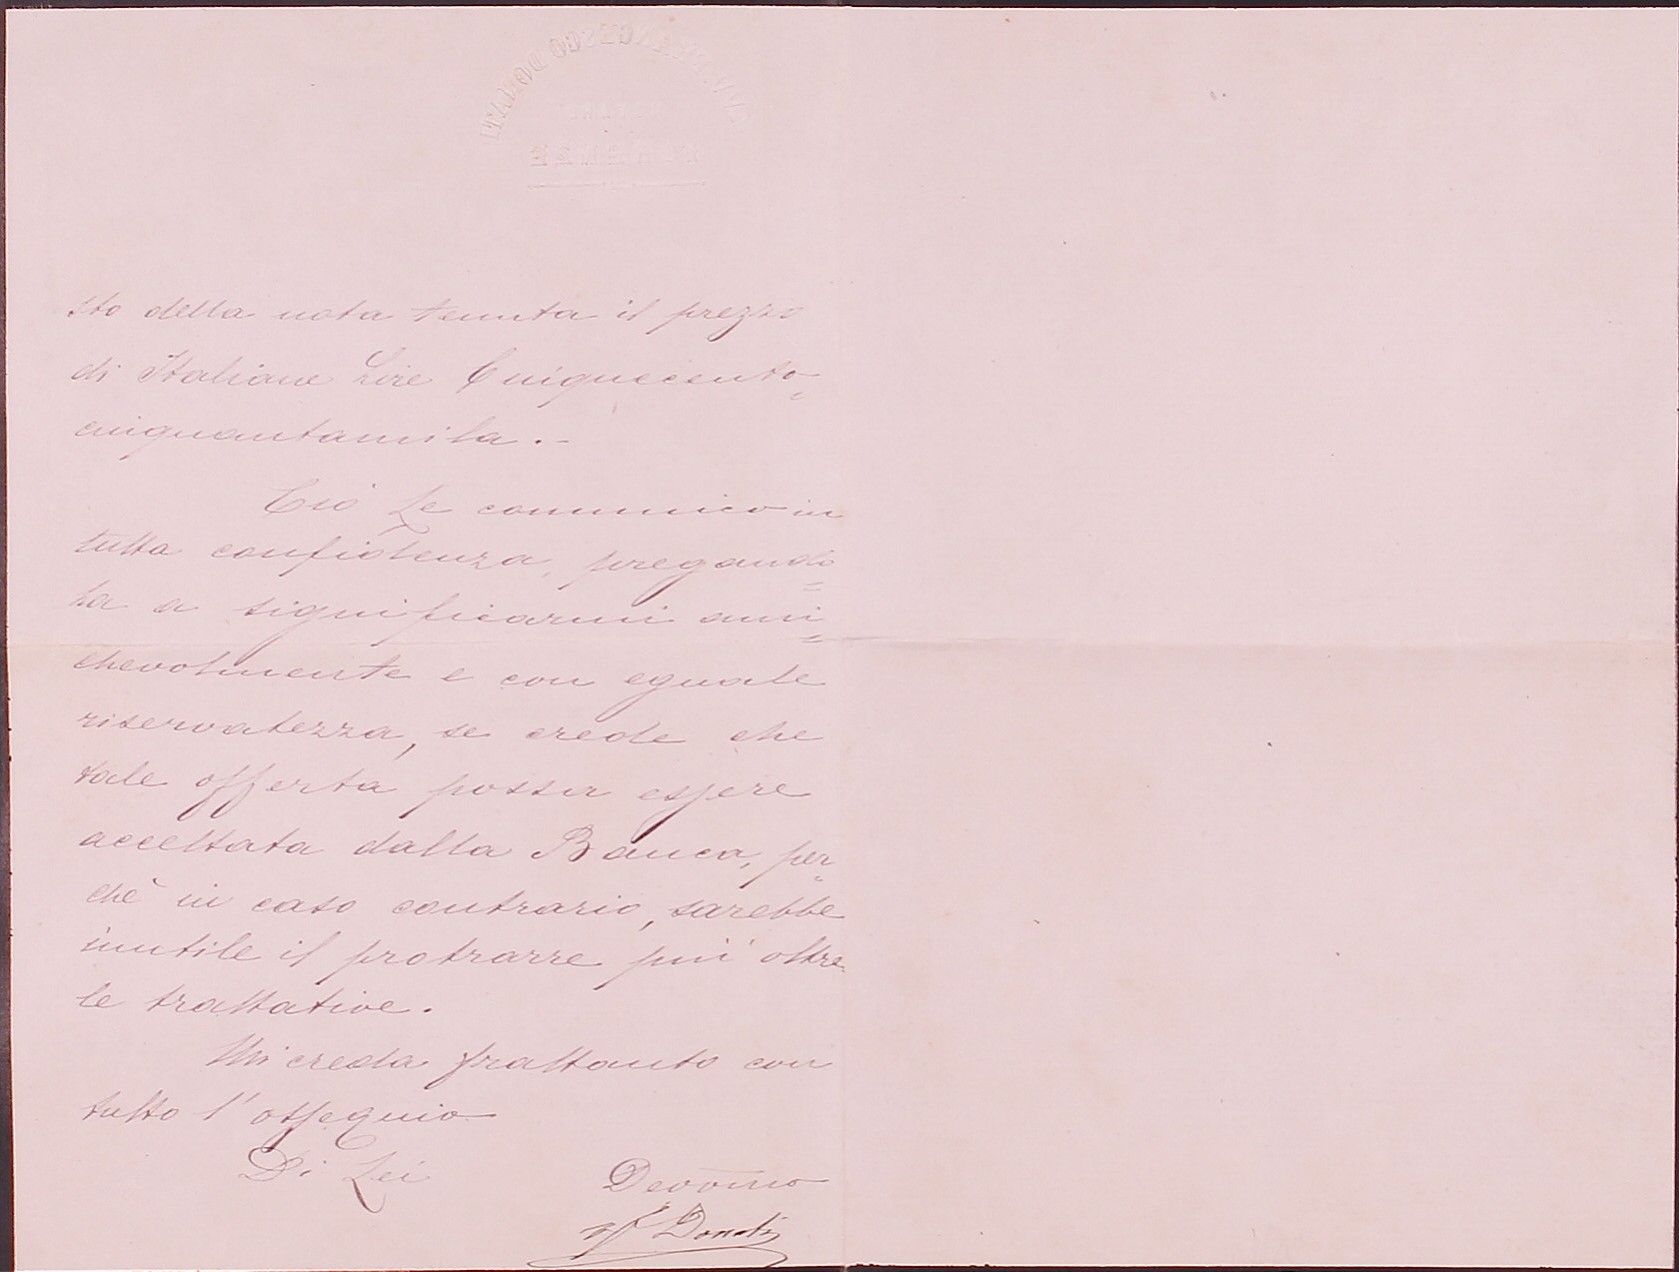 FRANCESCO DONATI
FIRENZE
sto della nota tenuta il prezzo
di Italiane Lire Cinquecento=
cinquantamila.-
Ciò Le comunico in
tutta confidenza, pregando=
La a significarmi ami=
chevolmente e con eguale
riservatezza, se crede che
tale offerta possa essere
accettata dalla Banca, per=
chè in caso contrario, sarebbe
inutile il protrarre più oltre
le trattative.
Mi creda frattanto con
tutto l'ossequio
Di Lei
Devo͞mo
F Donati